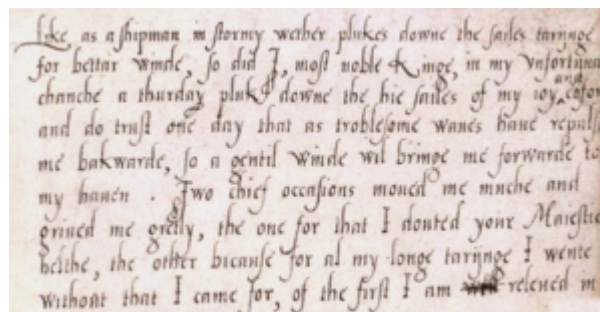 Like as a shipman in stormy wether plukes downe the sailes tarijnge
for bettar winde, so did I, most noble Kinge, in my vnfortuna
chanche a thurday pluk downe the hie sailes of my ioy and cofor
and do trust one day that as troblesome wanes haue repulse
me bakwarde, so a gentil winde wil bringe me forwarde to
my hauen . Two chief occasions moued me muche and
griued me gretly, the one for that I douted your Maiestie
helthe, the other bicause for al my longe tarijnge I wente
without that I came for, of the first I am releued in